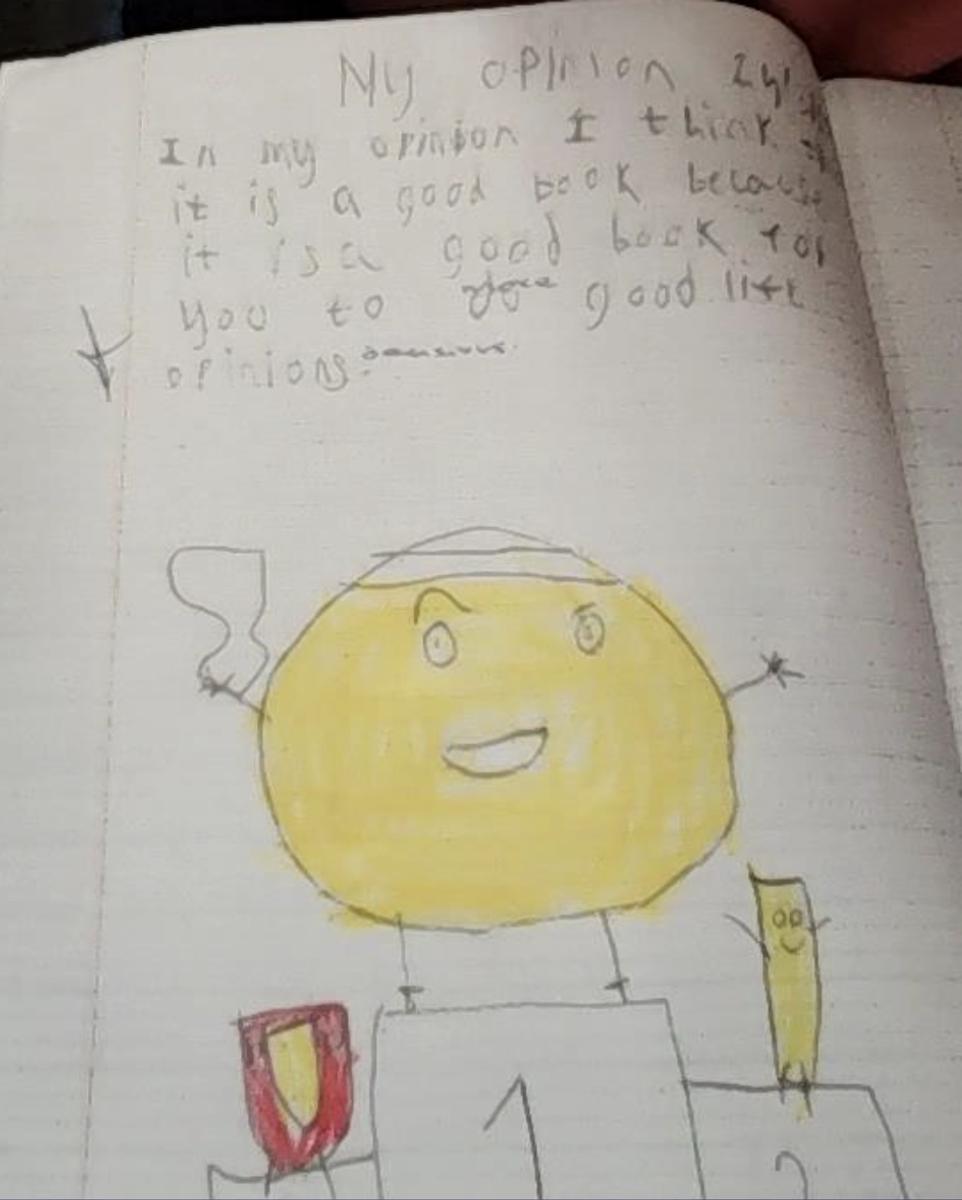 My opinion
In my opinion I think
it is a good book becaus
it is a good book for
you to good life
opinions.
1
2